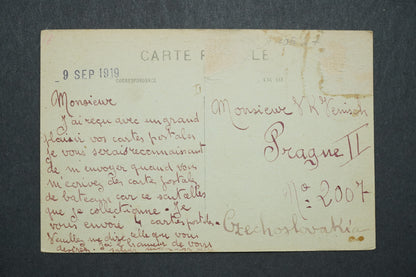 CARTE P LE
9 SEP 1919
CORRESPONDANCE
Monsieur
J'ai reçu avec un grand
plaisir vos cartes postales
Je vous serais reconnaissant
de m'envoyer quand vous
m'écrivez des carte postale
de bateaux car ce sont elles
que je collectionne. Je
vous envoie 4 cartes postales.
Veuillez me dire celle que vous
désirez. J'ai l'honneur de vous
saluer
Monsieur VK
Prague II
No: 2007
Czechoslovakia